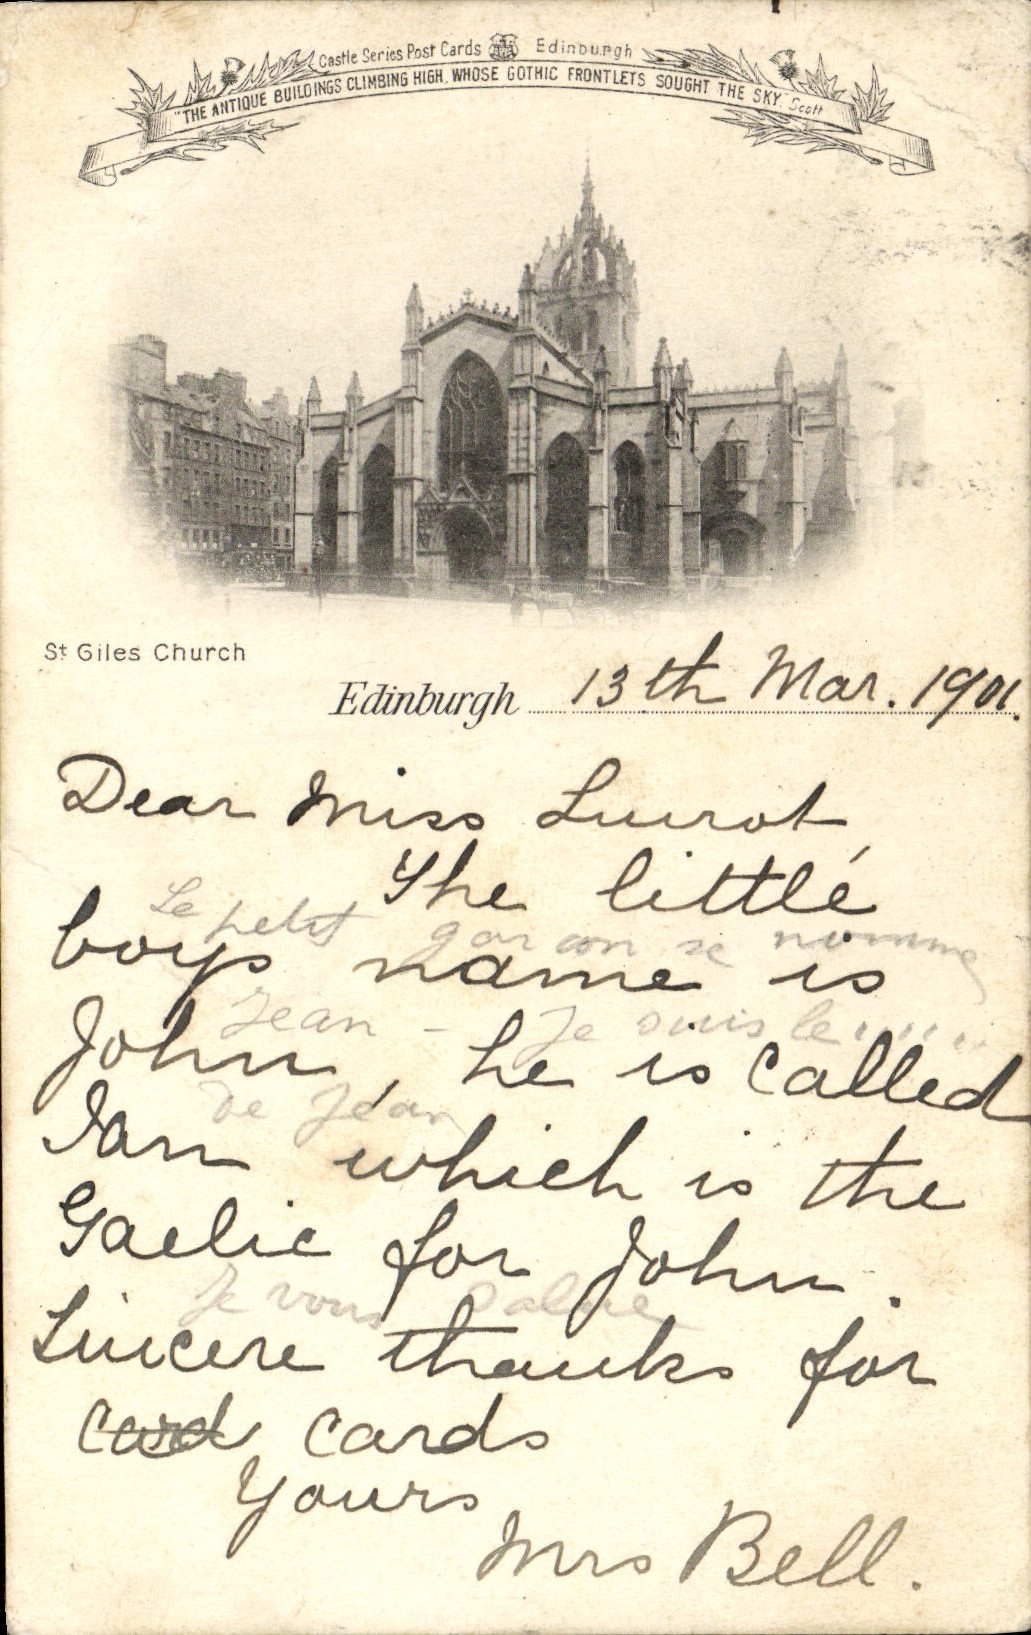 Castle Series Post Cards Edinburgh
"THE ANTIQUE BUILDINGS CLIMBING HIGH, WHOSE GOTHIC FRONTLETS SOUGHT THE SKY." Scott
St Giles Church
Edinburgh 13th Mar. 1901.
Dear Miss Lurot,
The little
Le petit garcon se nomme
boys name is
Jean - Je suis le
John, he is called
de Jean
Ian which is the
Gaelic for John.
Je vous
Sincere thanks for
card cards
Yours
Mrs Bell.